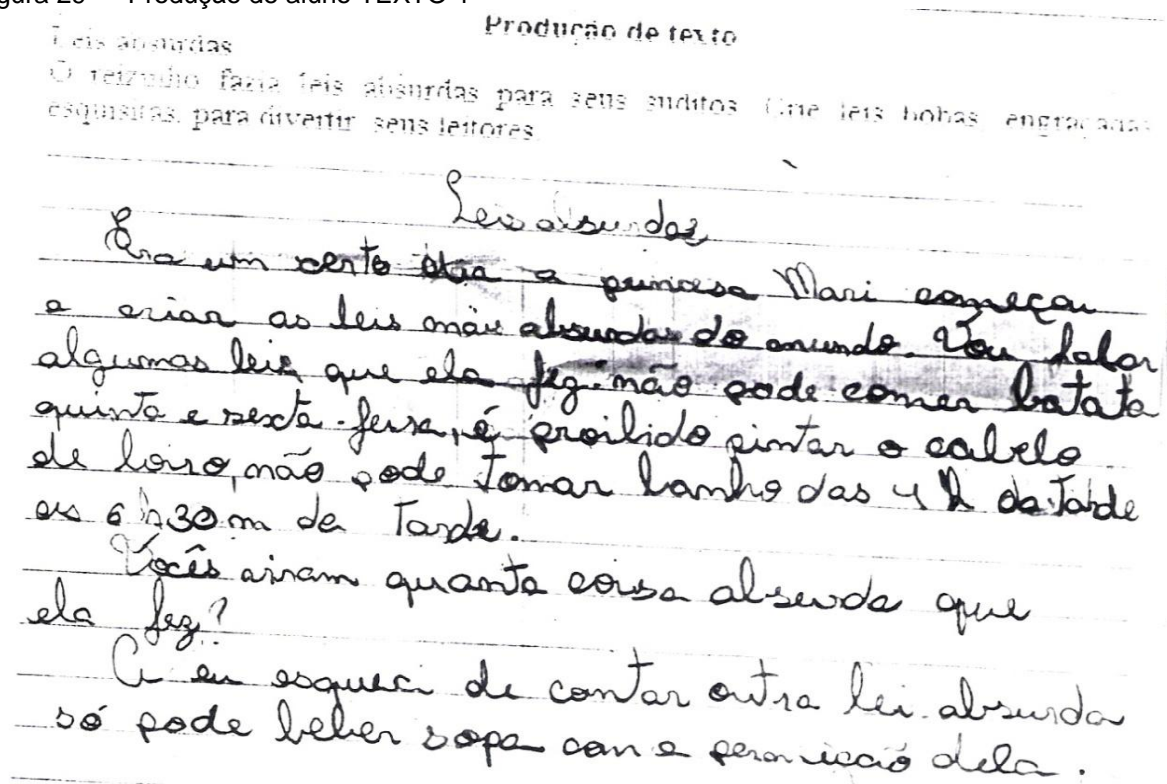 Produção do aluno TEXTO 1
Produção de texto
Leis absurdas
O reizinho fazia leis absurdas para seus súditos. Crie leis bobas, engraçadas
esquisitas, para divertir seus leitores.
Leis absurdas
Era um certo dia a princesa Mari começou
a criar as leis mais absurdas do mundo. Vou falar
algumas leis que ela fez: não pode comer batata
quinta e sexta-feira, é proibido pintar o cabelo
de loiro, não pode tomar banho das 4 h da tarde
as 6 h30 m da tarde.
Vocês viram quanta coisa absurda que
ela fez?
A eu esqueci de contar outra lei absurda
só pode beber sopa con a permicão dela.